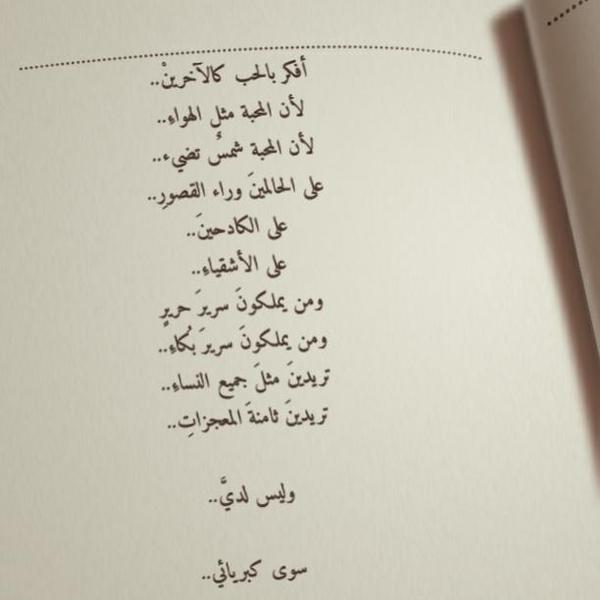 أفكر بالحب كالآخرينْ..
لأن المحبة مثل الهواءِ..
لأن المحبة شمسٌ تضيء..
على الحالمينَ وراء القصورِ..
على الكادحينَ..
على الأشقياءِ..
ومن يملكونَ سريرَ حريرٍ
ومن يملكونَ سريرَ بُكاءِ..
تريدينَ مثلَ جميع النساءِ..
تريدينَ ثامنةَ المعجزاتِ..
وليس لديَّ..
سوى كبريائي..